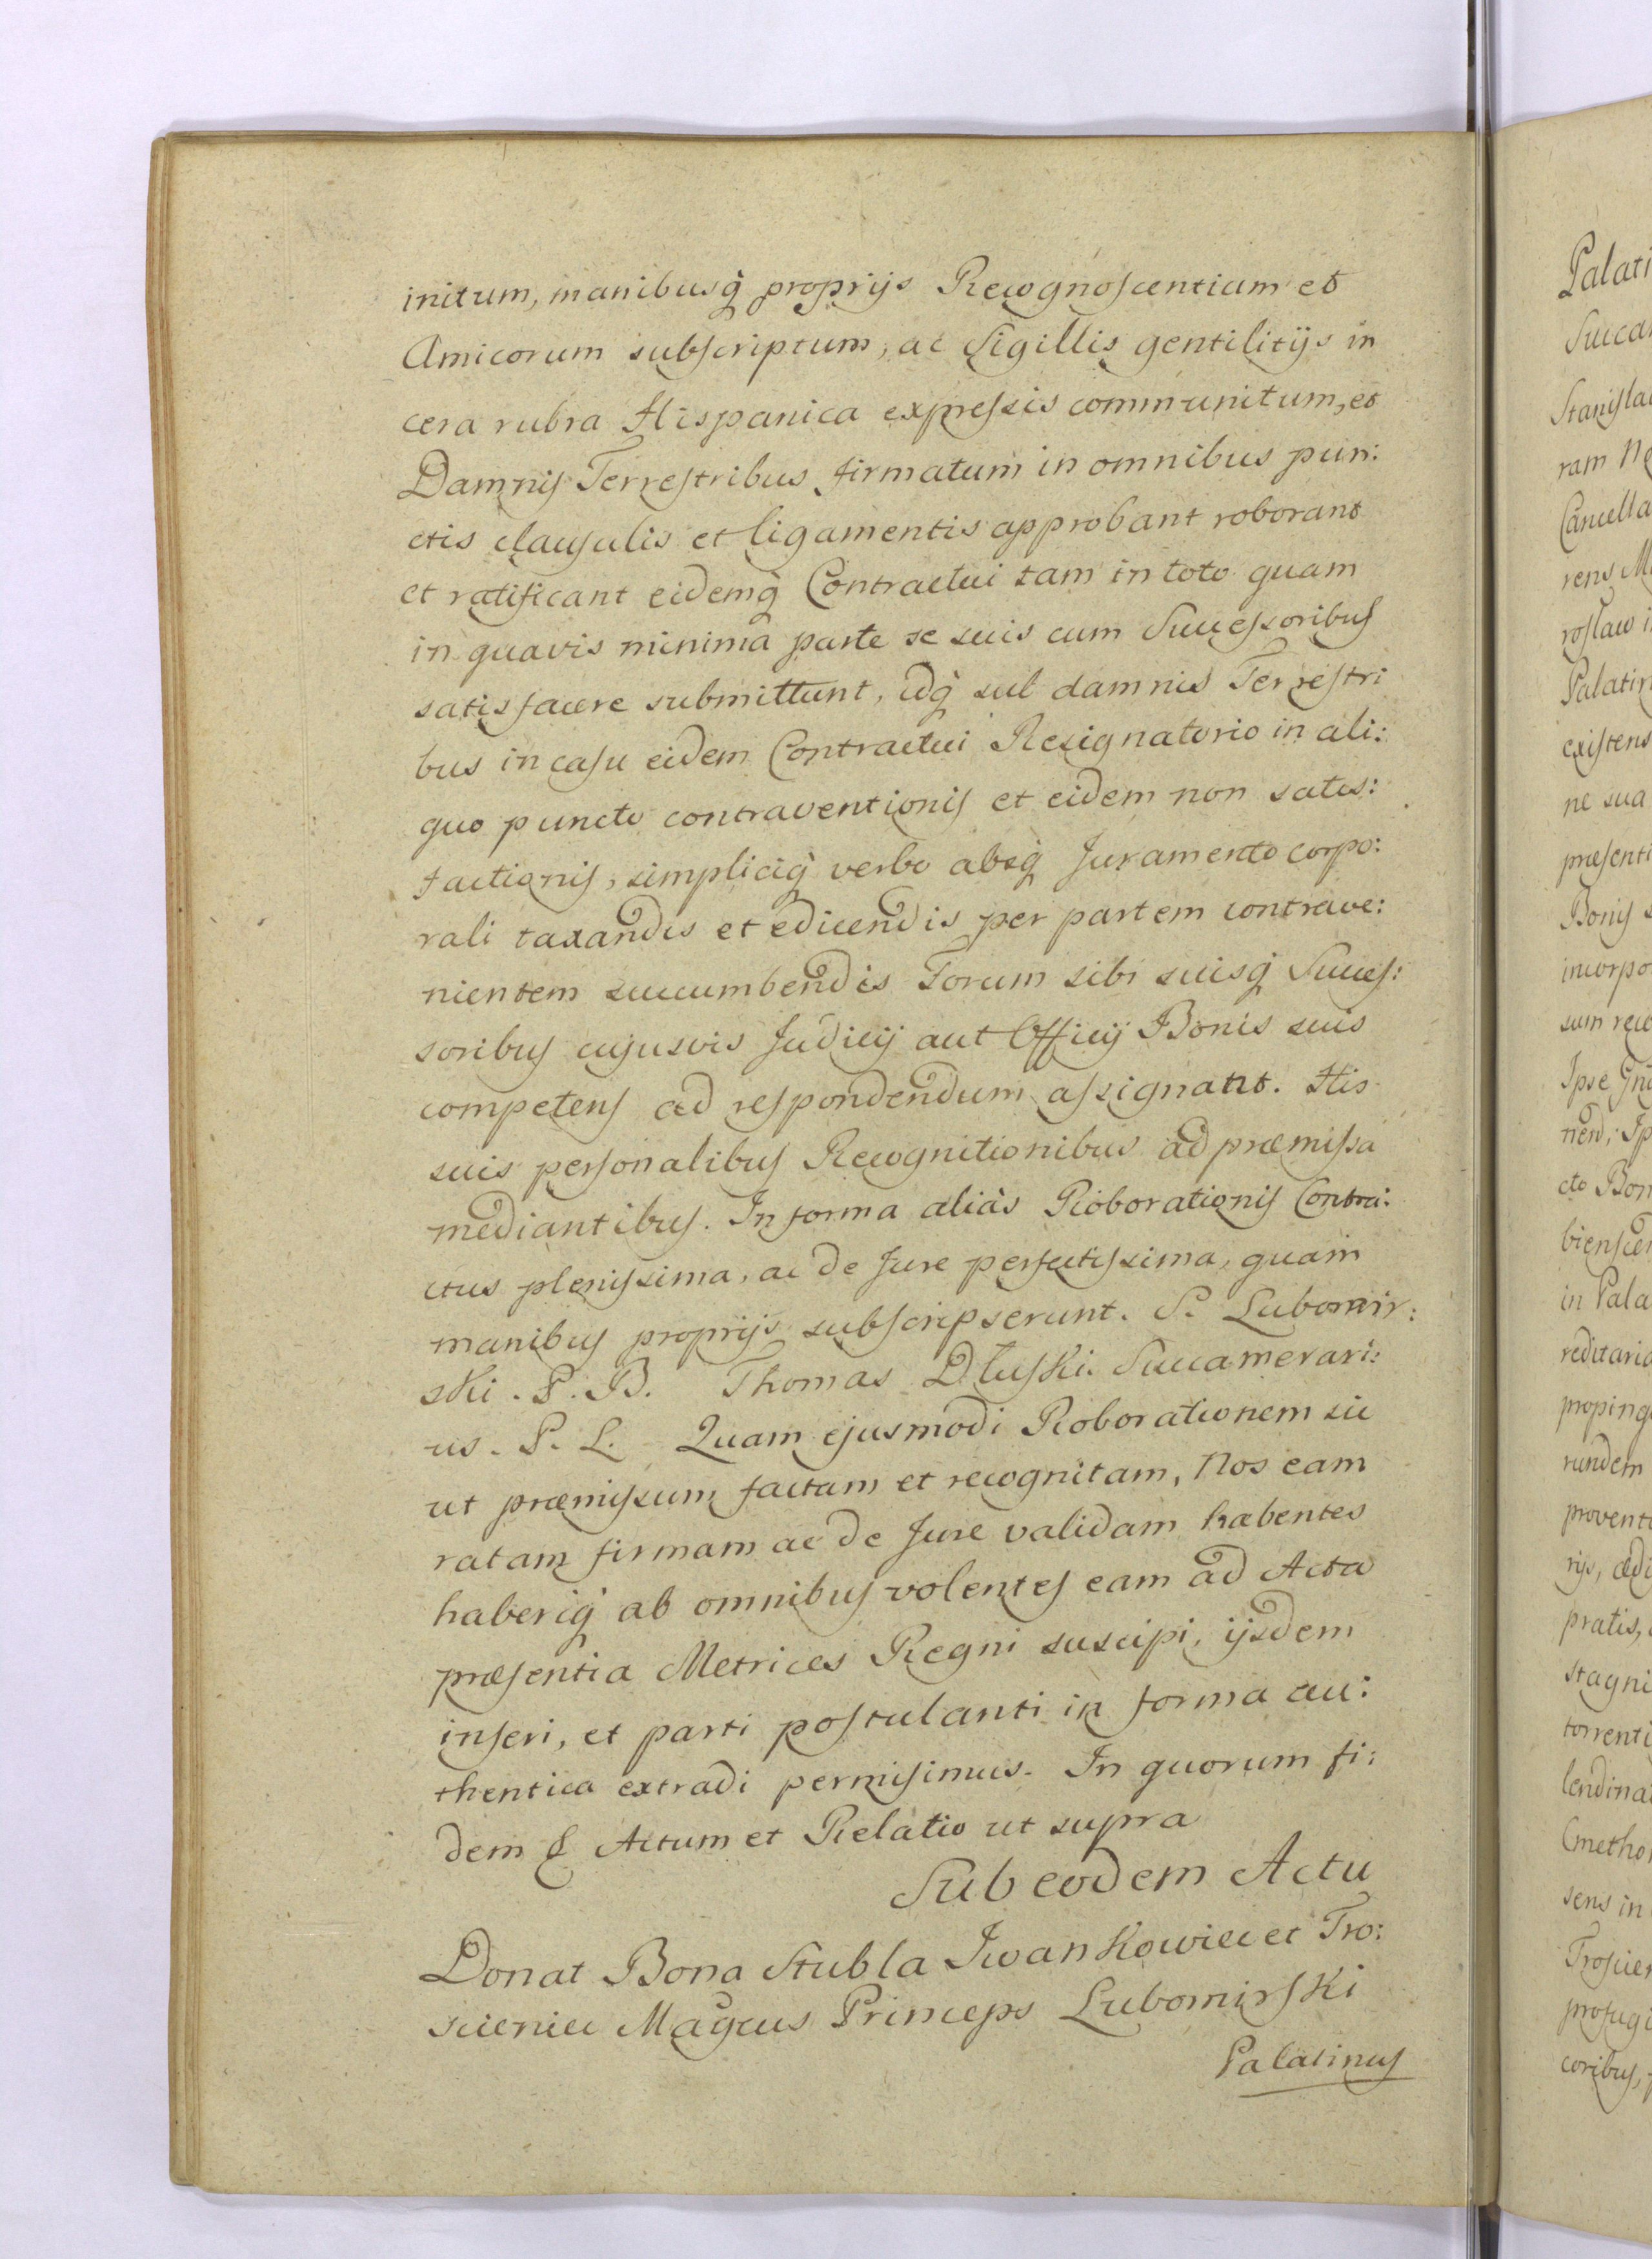 initum, manibusq̀ proprijs Recognoscentium et
Amicorum subscriptum, ac Sigillis gentilitijs in
cera rubra Hispanica expressis communitum, et
Damnis Terrestribus firmatum in omnibus pun:
ctis clausulis et ligamentis approbant roborant
et ratificant eidemq̀ Contractui tam in toto quam
in quavis minima parte se suis cum Successoribus
satisfacere submittunt, idq̀ sub damnis Terrestri
bus in casu eidem Contractui Resignatorio in ali:
quo puncto contraventionis et eidem non satis:
factionis, simpliciq̀ verbo absq̀ Juramento corpo:
rali taxandis et edicendis per partem contrave:
nientem succumbendis Forum sibi suisq̀ Succes:
soribus cujusvis Judicij aut Officij Bonis suis
competens ad respondendum assignant. His
suis personalibus Recognitionibus ad præmissa
mediantibus. In forma aliàs Roborationis Contra:
ctus plenissima, ac de Jure perfectissima, quam
manibus proprijs subscripserunt. S. Lubomir:
ski. P. B. Thomas Dłuski. Succamerari:
us. P. L. Quam ejusmodi Roborationem sic
ut præmissum factam et recognitam, Nos eam
ratam firmam ac de Jure validam habentes
haberiq̀ ab omnibus volentes eam ad Acta
præsentia Metrices Regni suscipi, ijsdem
inseri, et parti postulanti in forma au:
thentica extradi permisimus. In quorum fi:
dem & Actum et Relatio ut supra
Sub eodem Actu
Donat Bona Stubla Iwankowiec et Tro:
scieniec Magcus Princeps Lubomirski
Palatinus
Palati
Succa
Stanisla
ram
Cancella
rens
roslaw
Palatin
existens
ne sua
præsenti
Bonis
incorpo
sum reco
Ipse
nend,
cto Bon
in Pala
reditaria
propinq
rundem
provent
rijs, ædi
pratis,
stagni
torrenti
lendina
Cmetho
sens in
Troscien
profugi
coribus,